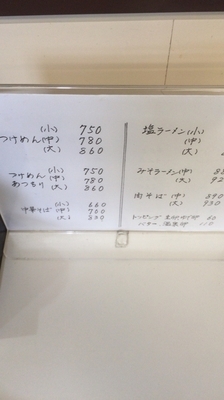 (小) 750
つけめん(中) 780
(大) 860
(小) 750
つけめん(中) 780
あつもり(大) 860
(小) 660
中華そば(中) 700
(大)
塩ラーメン(小)
(中)
(大)
みそラーメン(中)
(大) 92
肉そば(中) 890
(大) 930
トッピング 60
バター 110